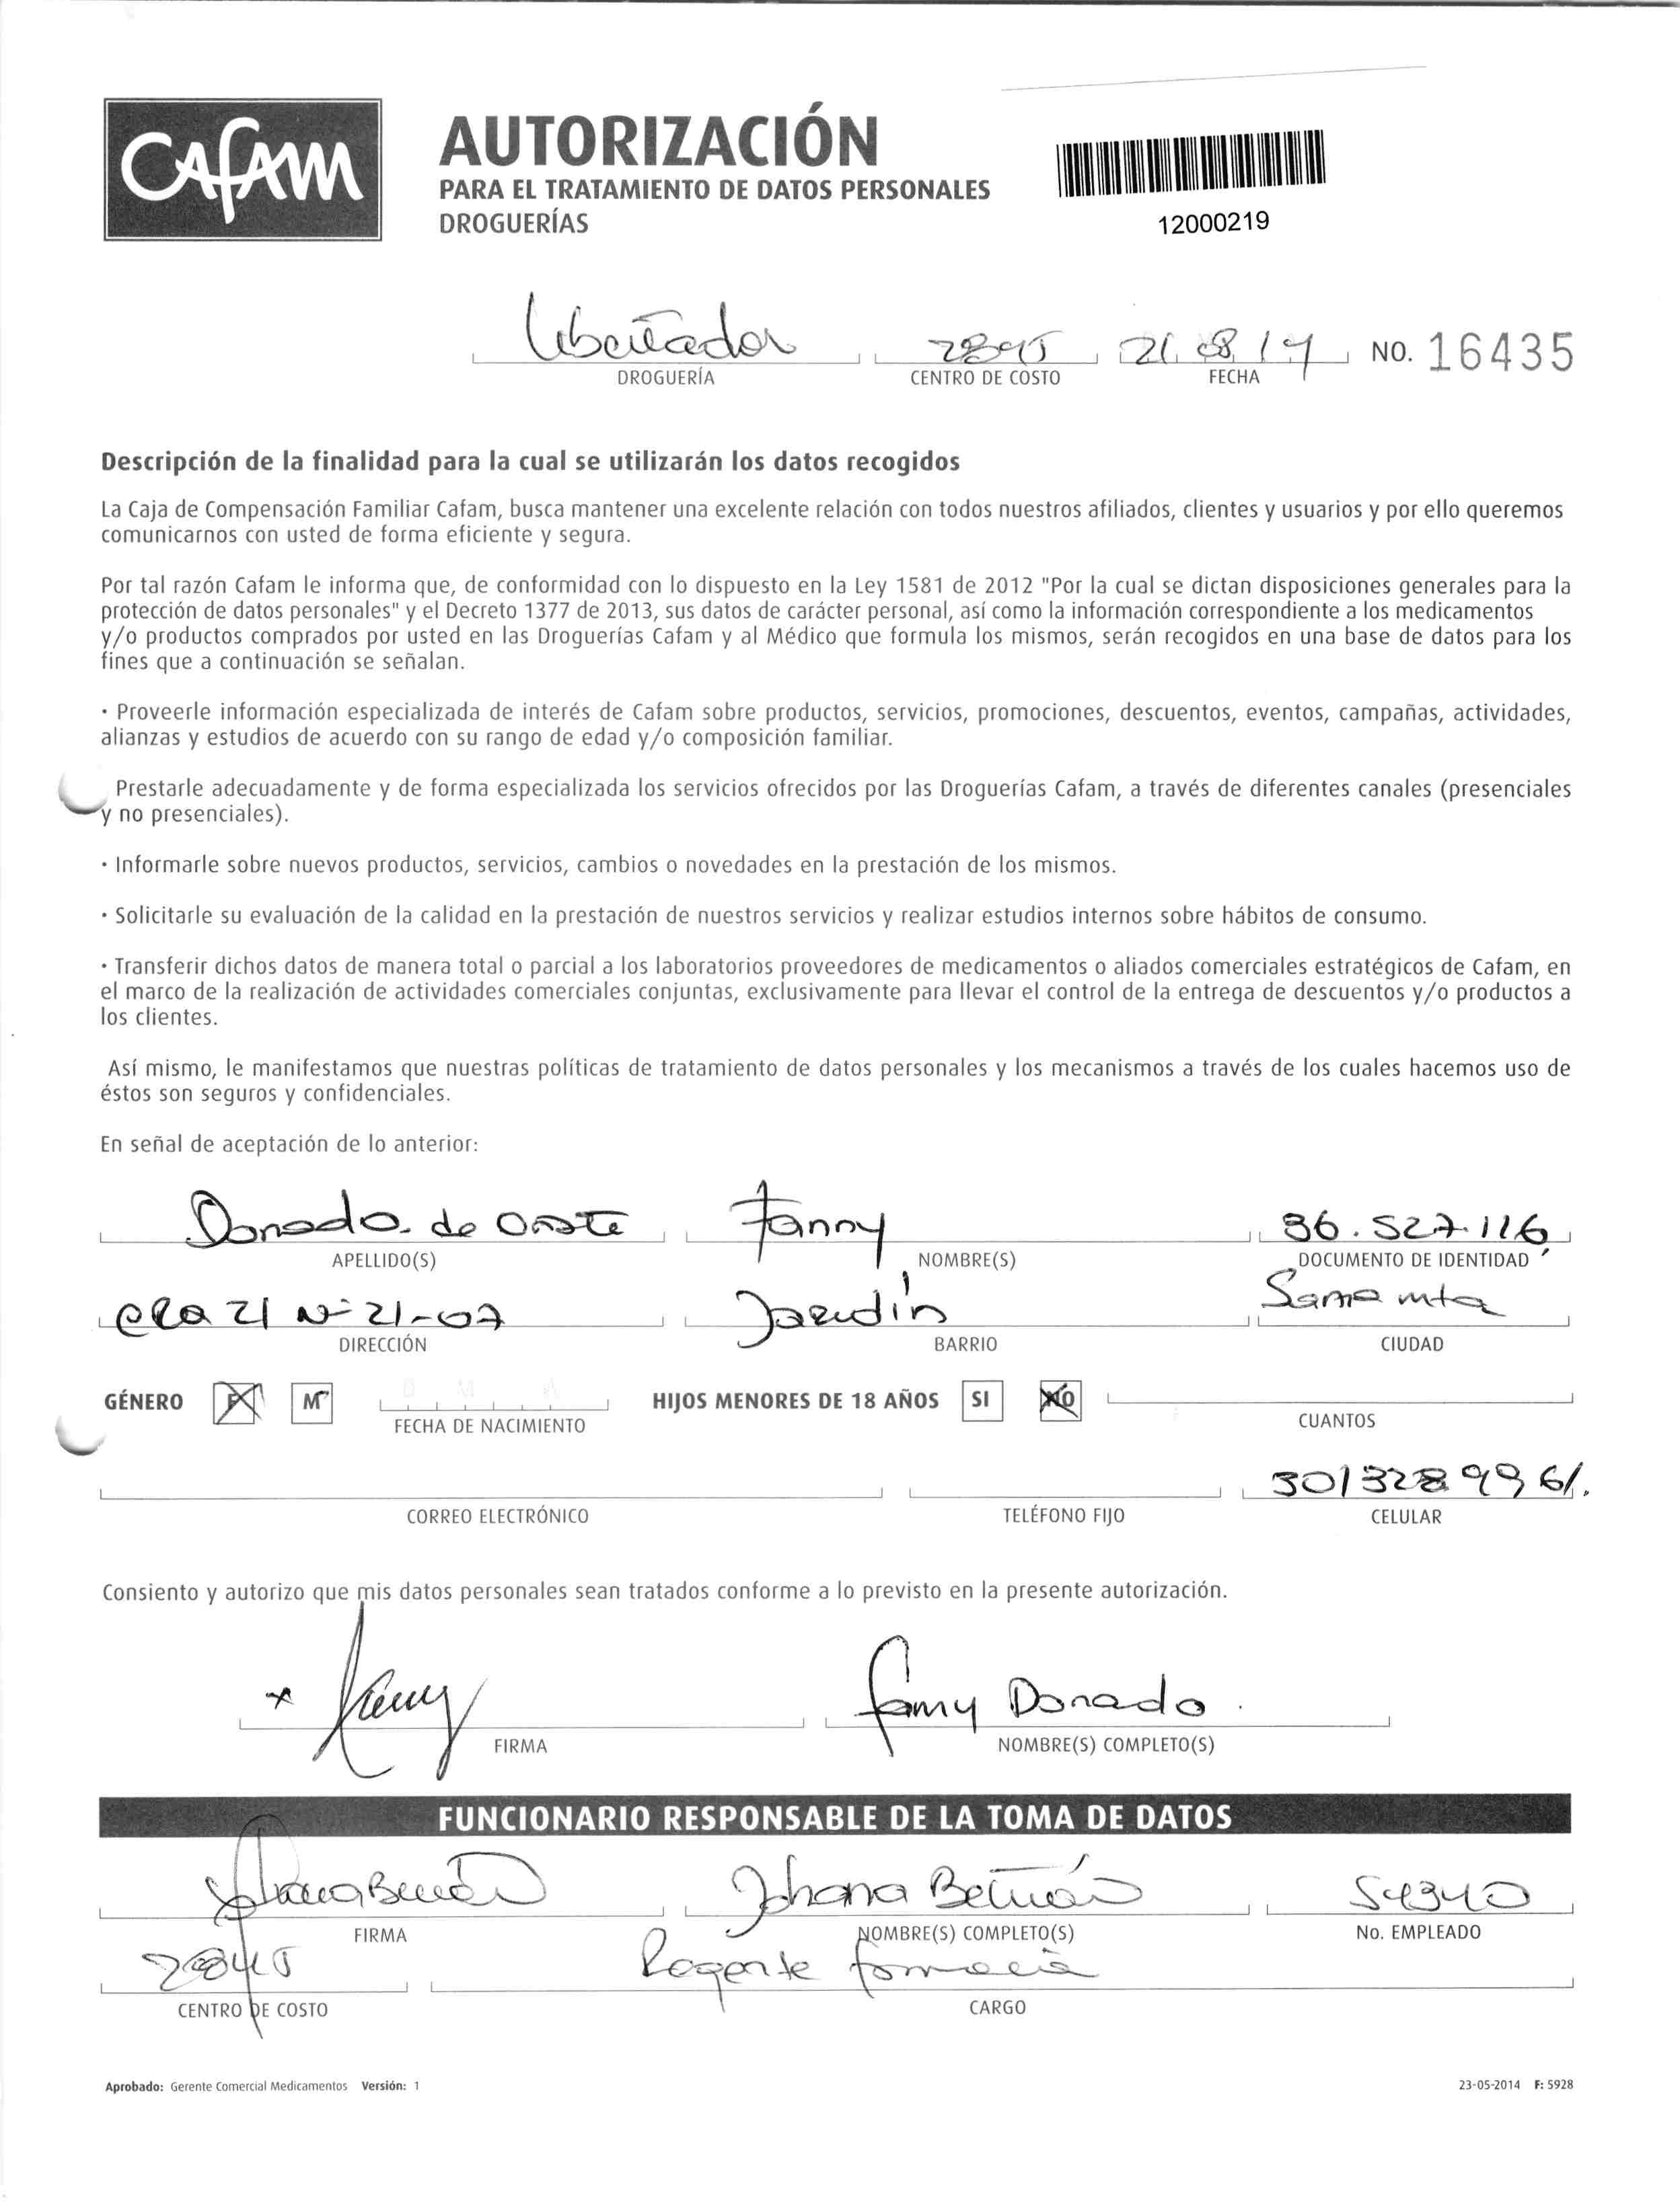 CAFAM
AUTORIZACIÓN
PARA EL TRATAMIENTO DE DATOS PERSONALES
DROGUERÍAS
12000219
Libertador 21 08 14 NO. 16435
DROGUERÍA CENTRO DE COSTO FECHA
Descripción de la finalidad para la cual se utilizarán los datos recogidos
La Caja de Compensación Familiar Cafam, busca mantener una excelente relación con todos nuestros afiliados, clientes y usuarios y por ello queremos
comunicarnos con usted de forma eficiente y segura.
Por tal razón Cafam le informa que, de conformidad con lo dispuesto en la Ley 1581 de 2012 "Por la cual se dictan disposiciones generales para la
protección de datos personales" y el Decreto 1377 de 2013, sus datos de carácter personal, así como la información correspondiente a los medicamentos
y/o productos comprados por usted en las Droguerías Cafam y al Médico que formula los mismos, serán recogidos en una base de datos para los
fines que a continuación se señalan.
· Proveerle información especializada de interés de Cafam sobre productos, servicios, promociones, descuentos, eventos, campañas, actividades,
alianzas y estudios de acuerdo con su rango de edad y/o composición familiar.
Prestarle adecuadamente y de forma especializada los servicios ofrecidos por las Droguerías Cafam, a través de diferentes canales (presenciales
y no presenciales).
· Informarle sobre nuevos productos, servicios, cambios o novedades en la prestación de los mismos.
· Solicitarle su evaluación de la calidad en la prestación de nuestros servicios y realizar estudios internos sobre hábitos de consumo.
· Transferir dichos datos de manera total o parcial a los laboratorios proveedores de medicamentos o aliados comerciales estratégicos de Cafam, en
el marco de la realización de actividades comerciales conjuntas, exclusivamente para llevar el control de la entrega de descuentos y/o productos a
los clientes.
Así mismo, le manifestamos que nuestras políticas de tratamiento de datos personales y los mecanismos a través de los cuales hacemos uso de
éstos son seguros y confidenciales.
En señal de aceptación de lo anterior:
Donado de Fanny 36.527.116
APELLIDO(S) NOMBRE(S) DOCUMENTO DE IDENTIDAD
CRA 21 Nº 21-07 Jardín Santa mta
DIRECCIÓN BARRIO CIUDAD
GÉNERO F M HIJOS MENORES DE 18 AÑOS SI NO
FECHA DE NACIMIENTO CUANTOS
3013289961.
CORREO ELECTRÓNICO TELÉFONO FIJO CELULAR
Consiento y autorizo que mis datos personales sean tratados conforme a lo previsto en la presente autorización.
x Fanny Fanny Donado.
FIRMA NOMBRE(S) COMPLETO(S)
FUNCIONARIO RESPONSABLE DE LA TOMA DE DATOS
Johana Beltrán 54340
FIRMA NOMBRE(S) COMPLETO(S) No. EMPLEADO
Regente farmacia
CENTRO DE COSTO CARGO
Aprobado: Gerente Comercial Medicamentos Versión: 1 23-05-2014 F: 5928